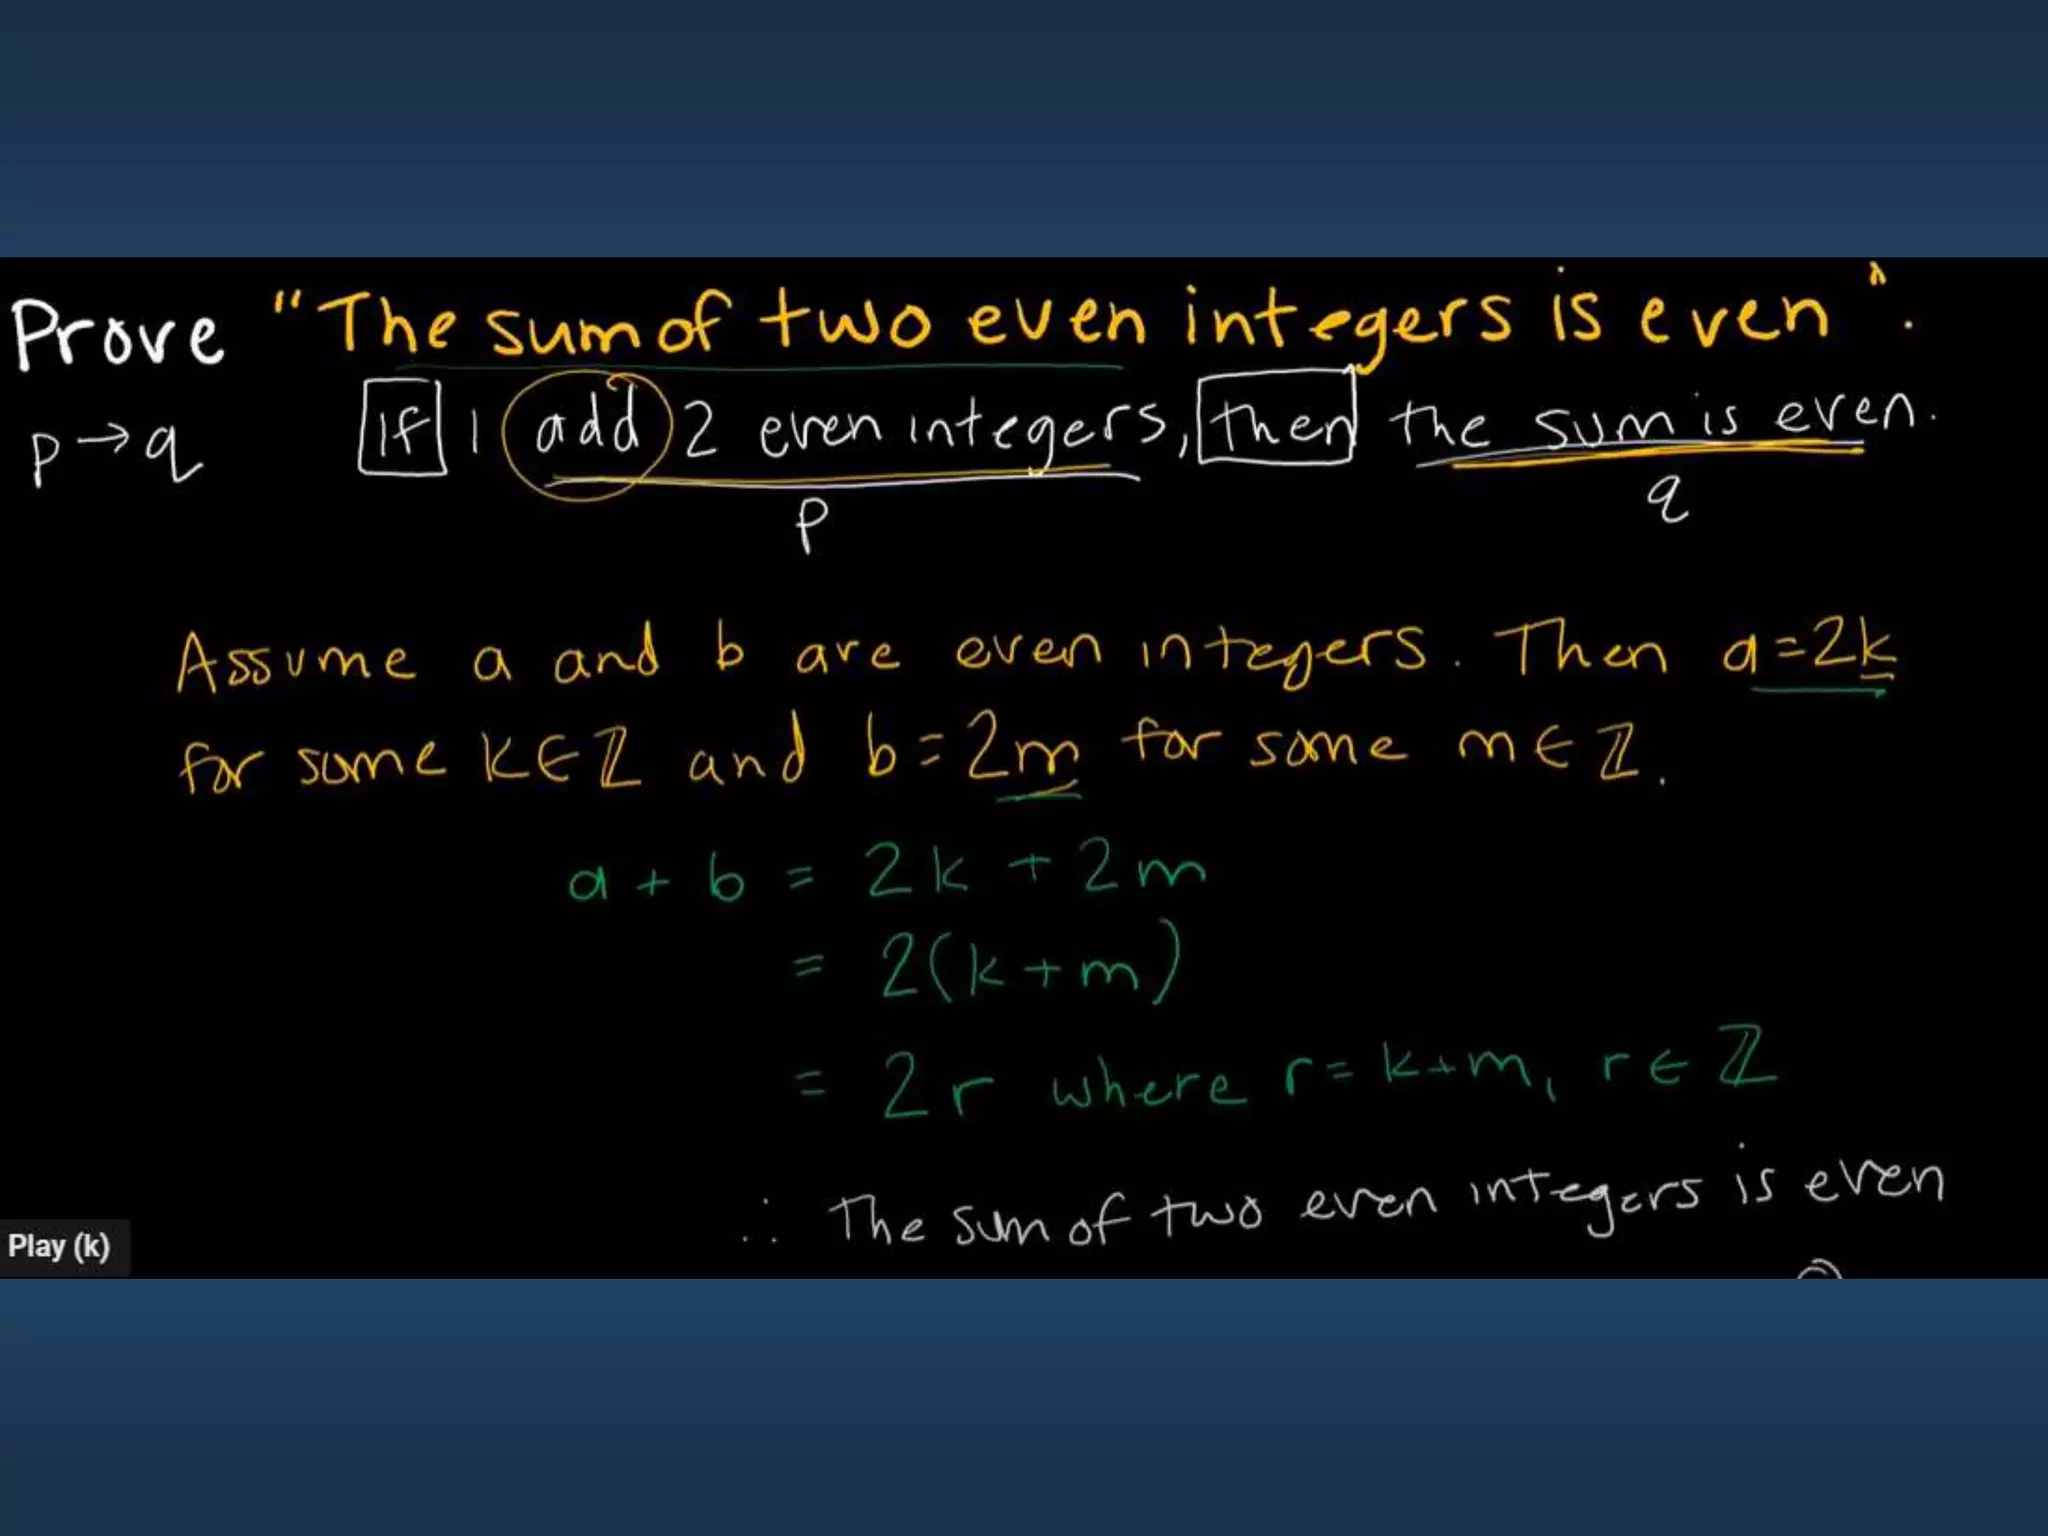 Prove "The sum of two even integers is even".
p→q If I add 2 even integers, then the sum is even.
p q
Assume a and b are even integers. Then a=2k
for some k∈ℤ and b=2m for some m∈ℤ.
a + b = 2k + 2m
= 2(k+m)
= 2r where r=k+m, r∈ℤ
∴ The sum of two even integers is even
Play (k)